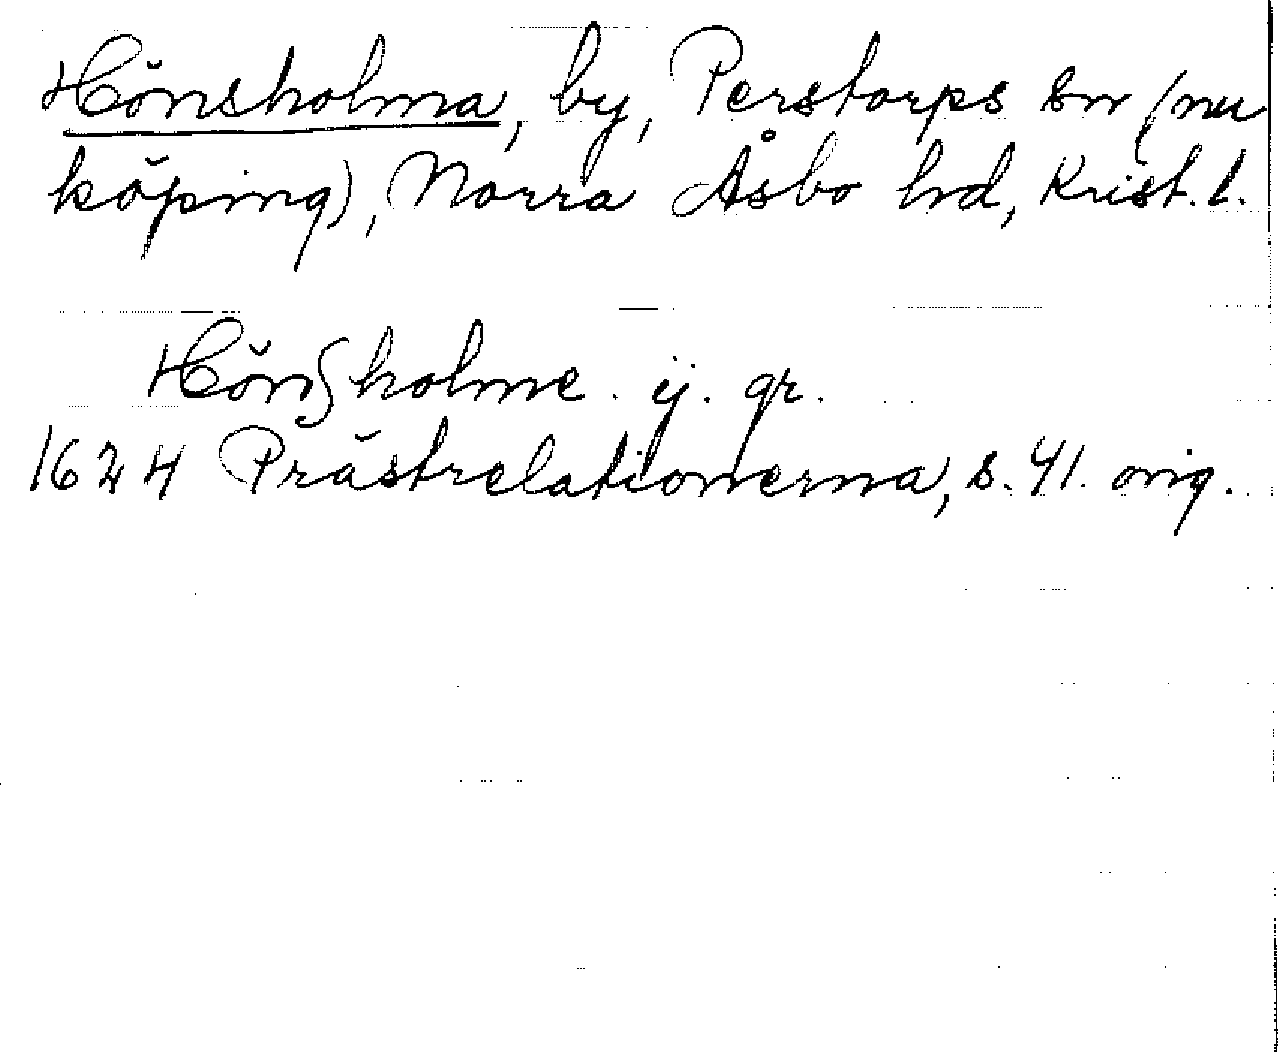 Hönsholma, by, Perstorps sn (nu
köping), Norra Åsbo hd, Krist. l.
Hönſholme . ij . gr.
1624 Prästrelationerna, s. 41. orig.